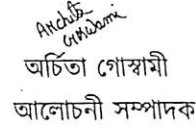 Archita
Goswami
অৰ্চিতা গোস্বামী
আলোচনী সম্পাদক